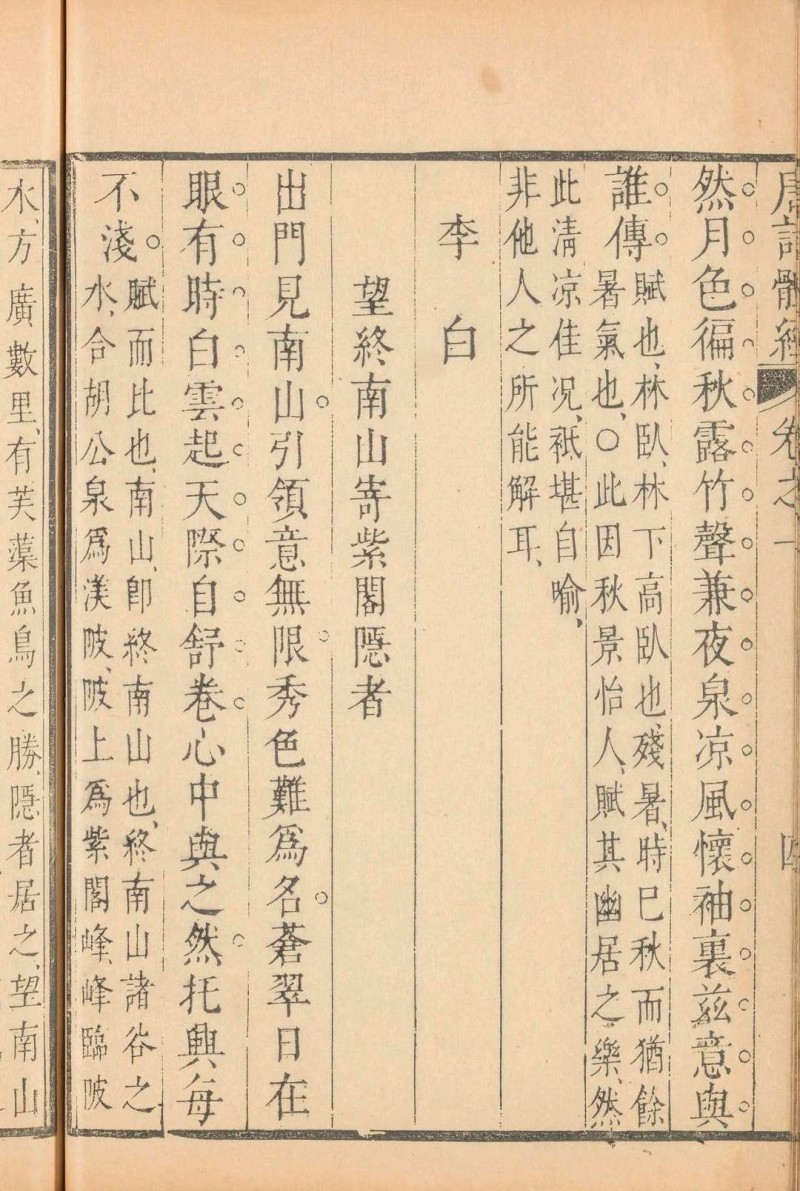 唐詩體經 卷之一 四
然月色徧秋露竹聲兼夜泉凉風懷袖裏茲意與
誰傳
賦也、林臥、林下高臥也、殘暑、時巳秋而猶餘
暑氣也、○此因秋景怡人、賦其幽居之樂、然
此淸凉佳况、祇堪自喻、
非他人之所能解耳、
李白
望終南山寄紫閣隱者
出門見南山引領意無限秀色難爲名蒼翠日在
眼有時白雲起天際自舒卷心中與之然托興每
不淺
賦而比也、南山、卽終南山也、終南山諸谷之
水、合胡公泉爲渼陂、陂上爲紫閣峰、峰臨陂
水、方廣數里、有芙蕖魚鳥之勝、隱者居之、望南山